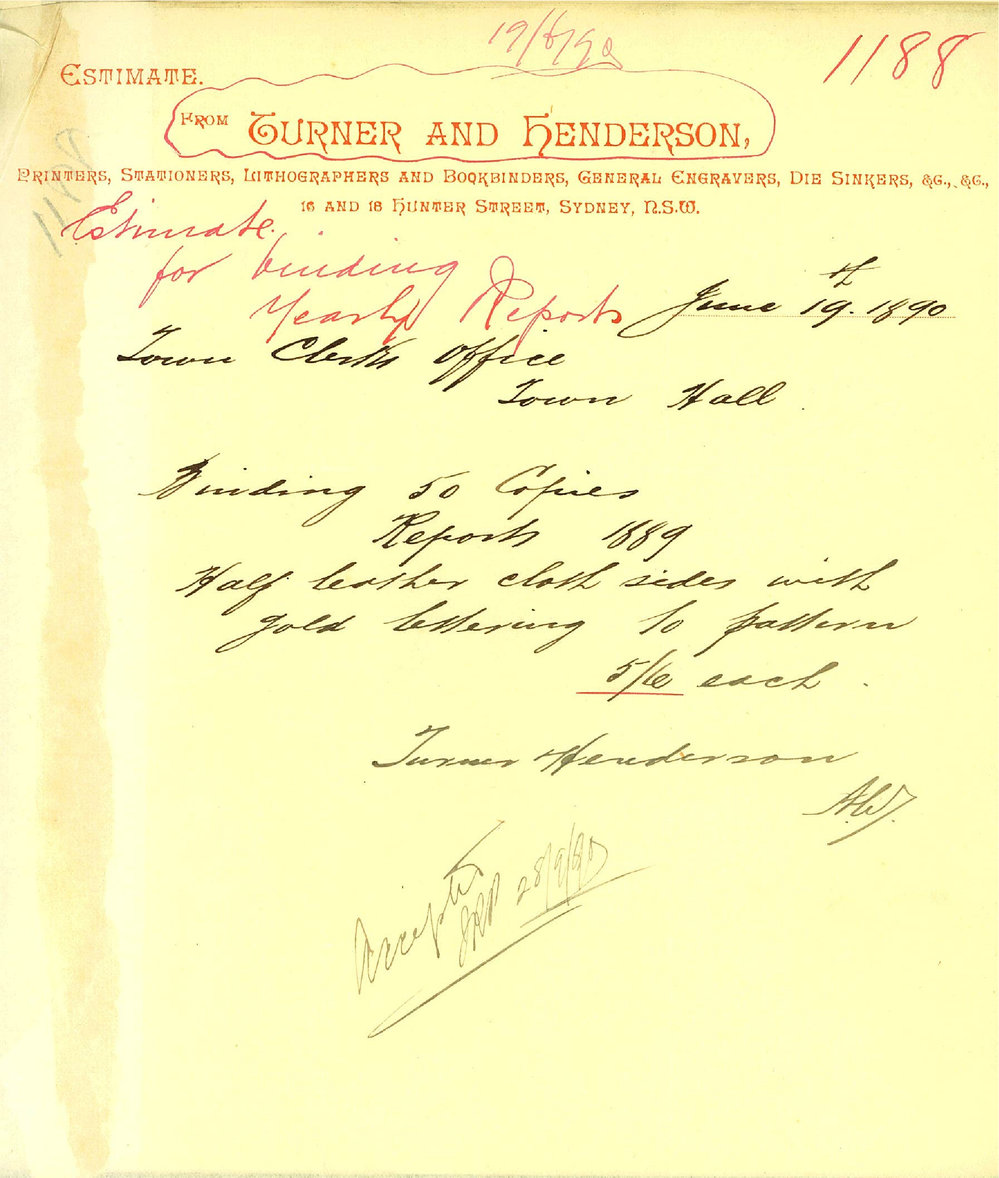 19/6/90
1188
ESTIMATE.
FROM TURNER AND HENDERSON,
PRINTERS, STATIONERS, LITHOGRAPHERS AND BOOKBINDERS, GENERAL ENGRAVERS, DIE SINKERS, &C., &C.,
16 AND 18 HUNTER STREET, SYDNEY, N.S.W.
1188
Estimate
for binding
Yearly Reports
June 19th. 1890
Town Clerks Office
Town Hall.
Binding 50 Copies
Reports 1889
Half leather cloth sides with
gold lettering to pattern
5/6 each.
Turner & Henderson
Accepted
28/9/90